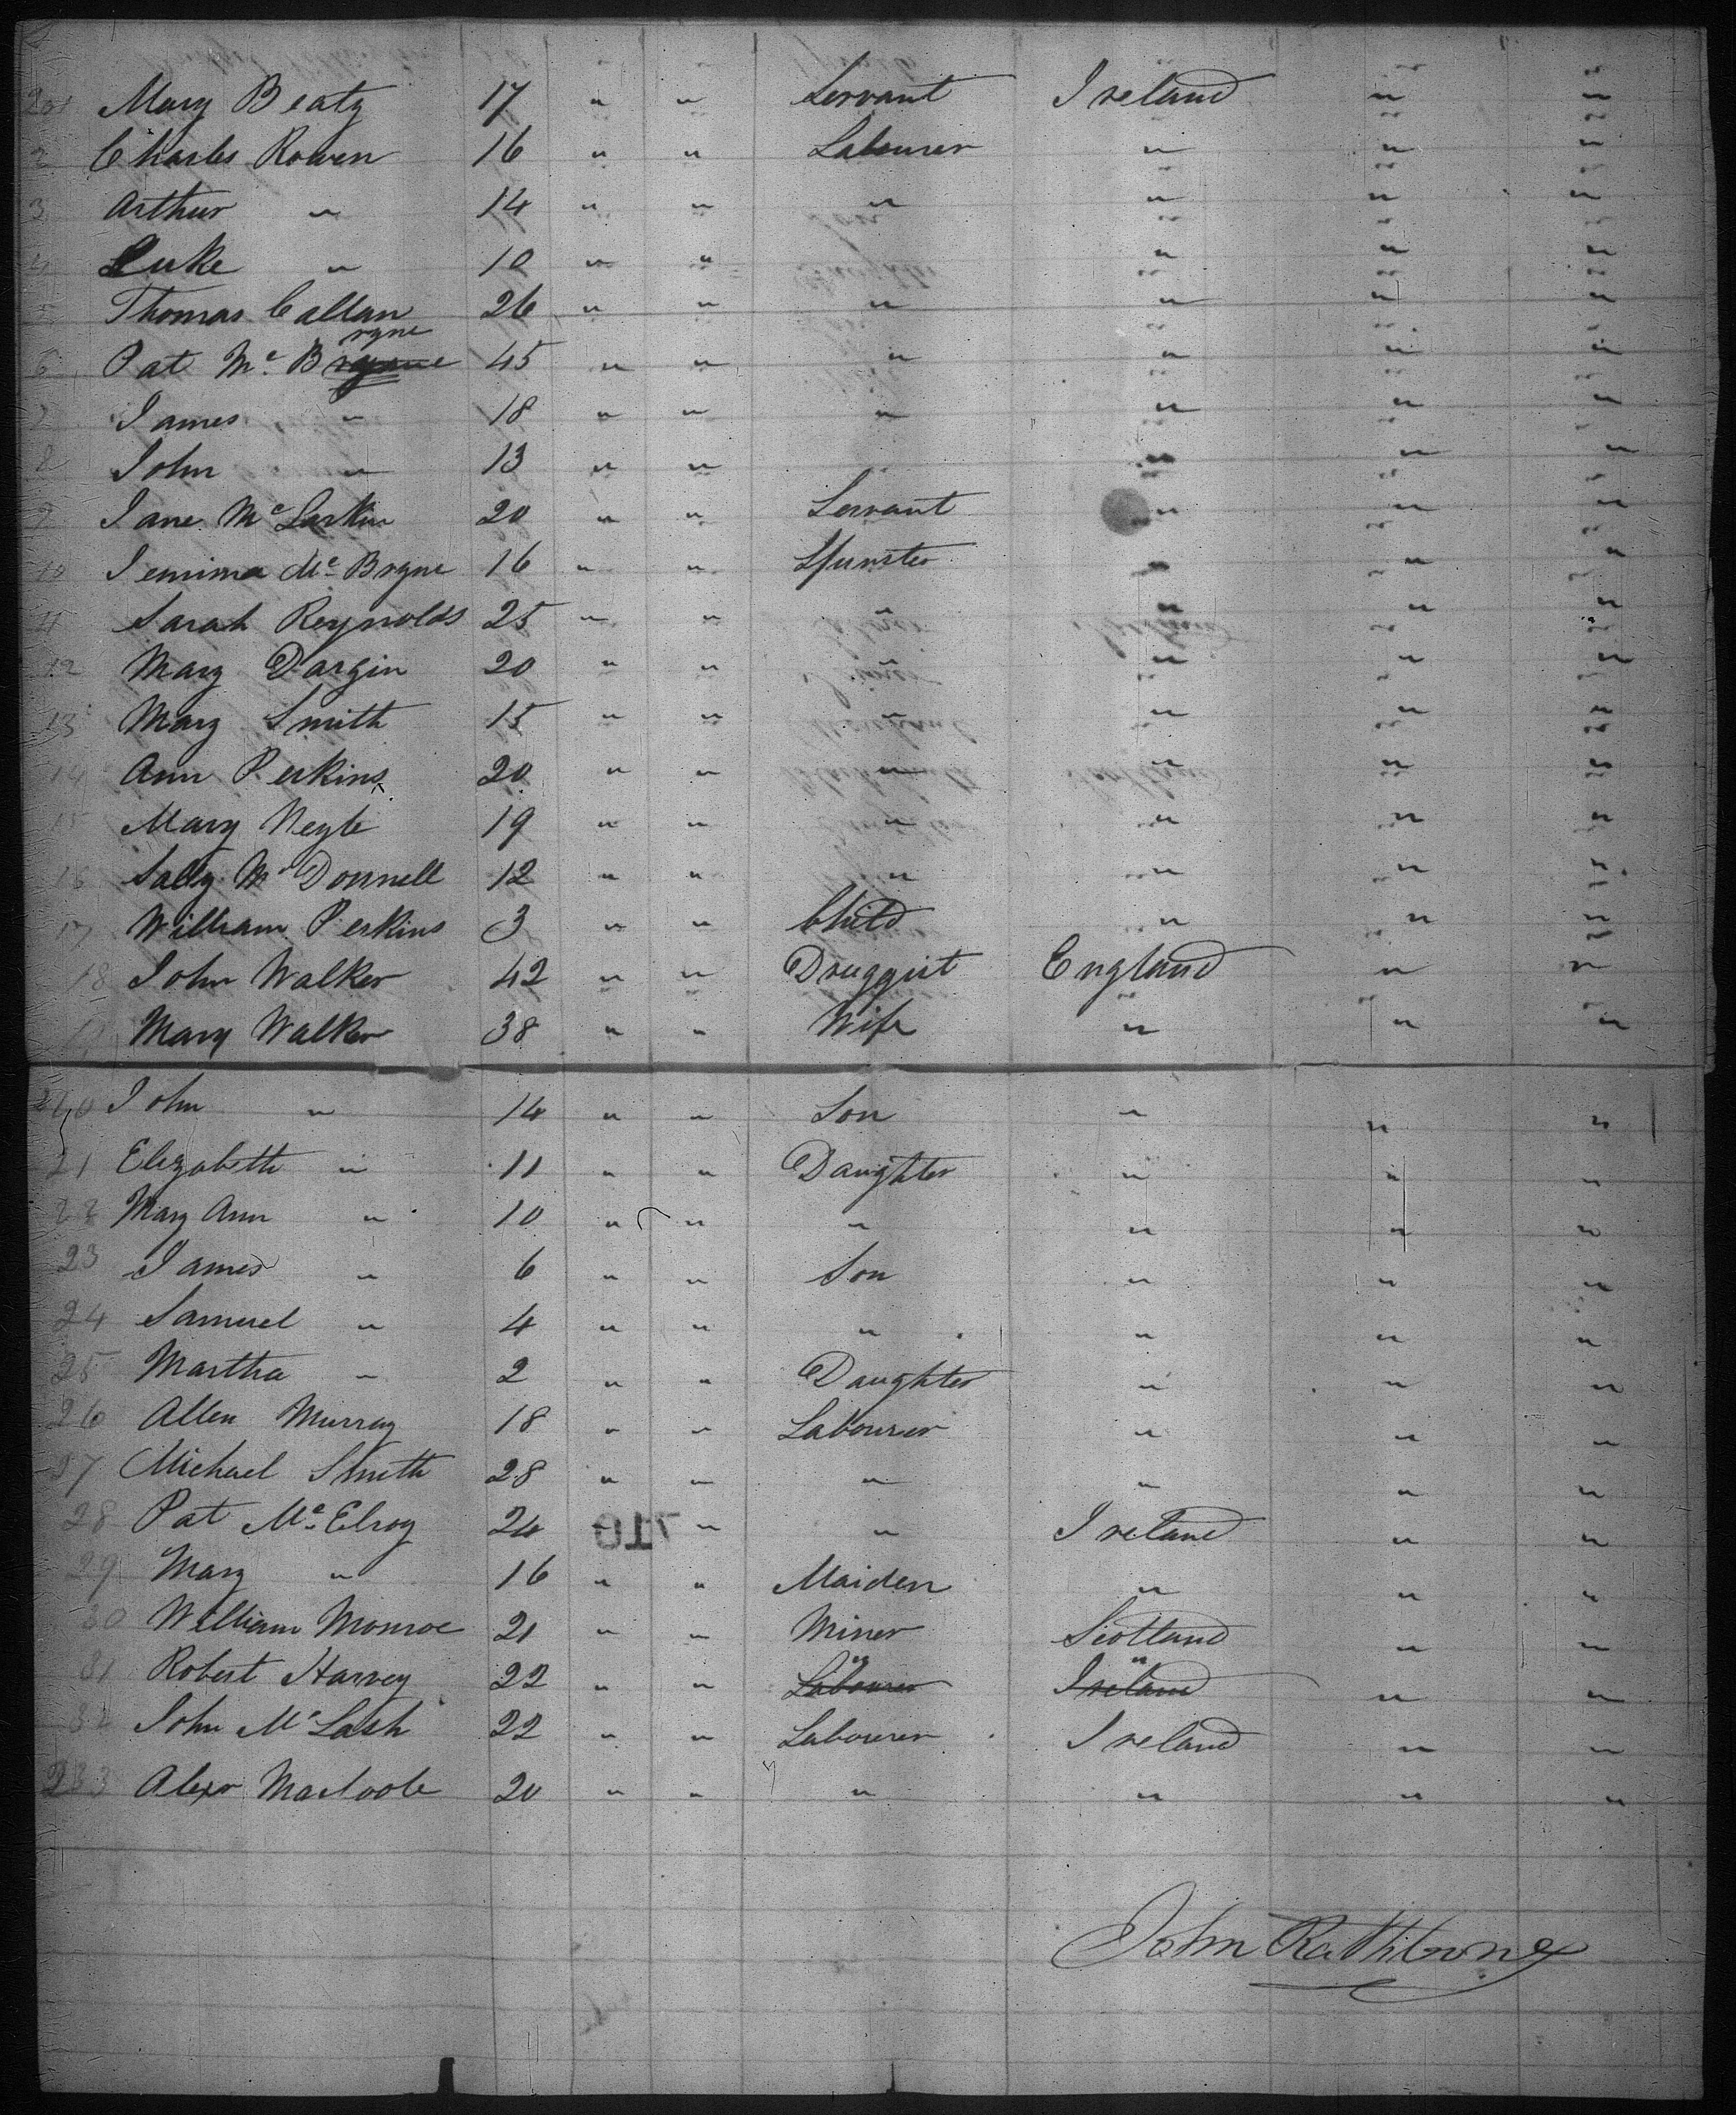 201 Mary Beaty 17 " " Servant Ireland " "
2 Charles Rowen 16 " " Labourer " " "
3 Arthur " 14 " " " " " "
4 Luke " 10 " " " " "
5 Thomas Callan 26 " " " " " "
rgne
6 Pat Mc Brgne 45 " " " " " "
7 James " 18 " " " " " "
8 John " 13 " " " " "
9 Jane Mc Larkin 20 " " Servant " " "
10 Jemima Mc Brgne 16 " " Spunster " " "
11 Sarah Reynolds 25 " " " " " "
12 Mary Dargin 20 " " " " " "
13 Mary Smith 15 " " " " " "
14 Ann Perkins 20 " " " " " "
15 Mary Neyle 19 " " " " " "
16 Sally Mc Donnell 12 " " " " " "
17 William Perkins 3 " " Child " " "
18 John Walker 42 " " Druggist England " "
19 Mary Walker 38 " " Wife " " "
220 John " 14 " " Son " " "
21 Elizabeth " 11 " " Daughter " " "
22 Mary Ann " 10 " " " " " "
23 James " 6 " " Son " " "
24 Samuel " 4 " " " " " "
25 Martha " 2 " " Daughter " " "
26 Allen Murray 18 " " Labourer " " "
27 Michael Smith 28 " " " " " "
28 Pat Mc Elroy 24 " " Ireland " "
710
29 Mary " 16 " " Maiden " " "
30 William Monroe 21 " " Miner Scotland " "
" "
31 Robert Harvey 22 " " Labourer Ireland " "
32 John Mc Lash 22 " " Labourer Ireland " "
233 Alexr 20 " " " " " "
John Rathbone